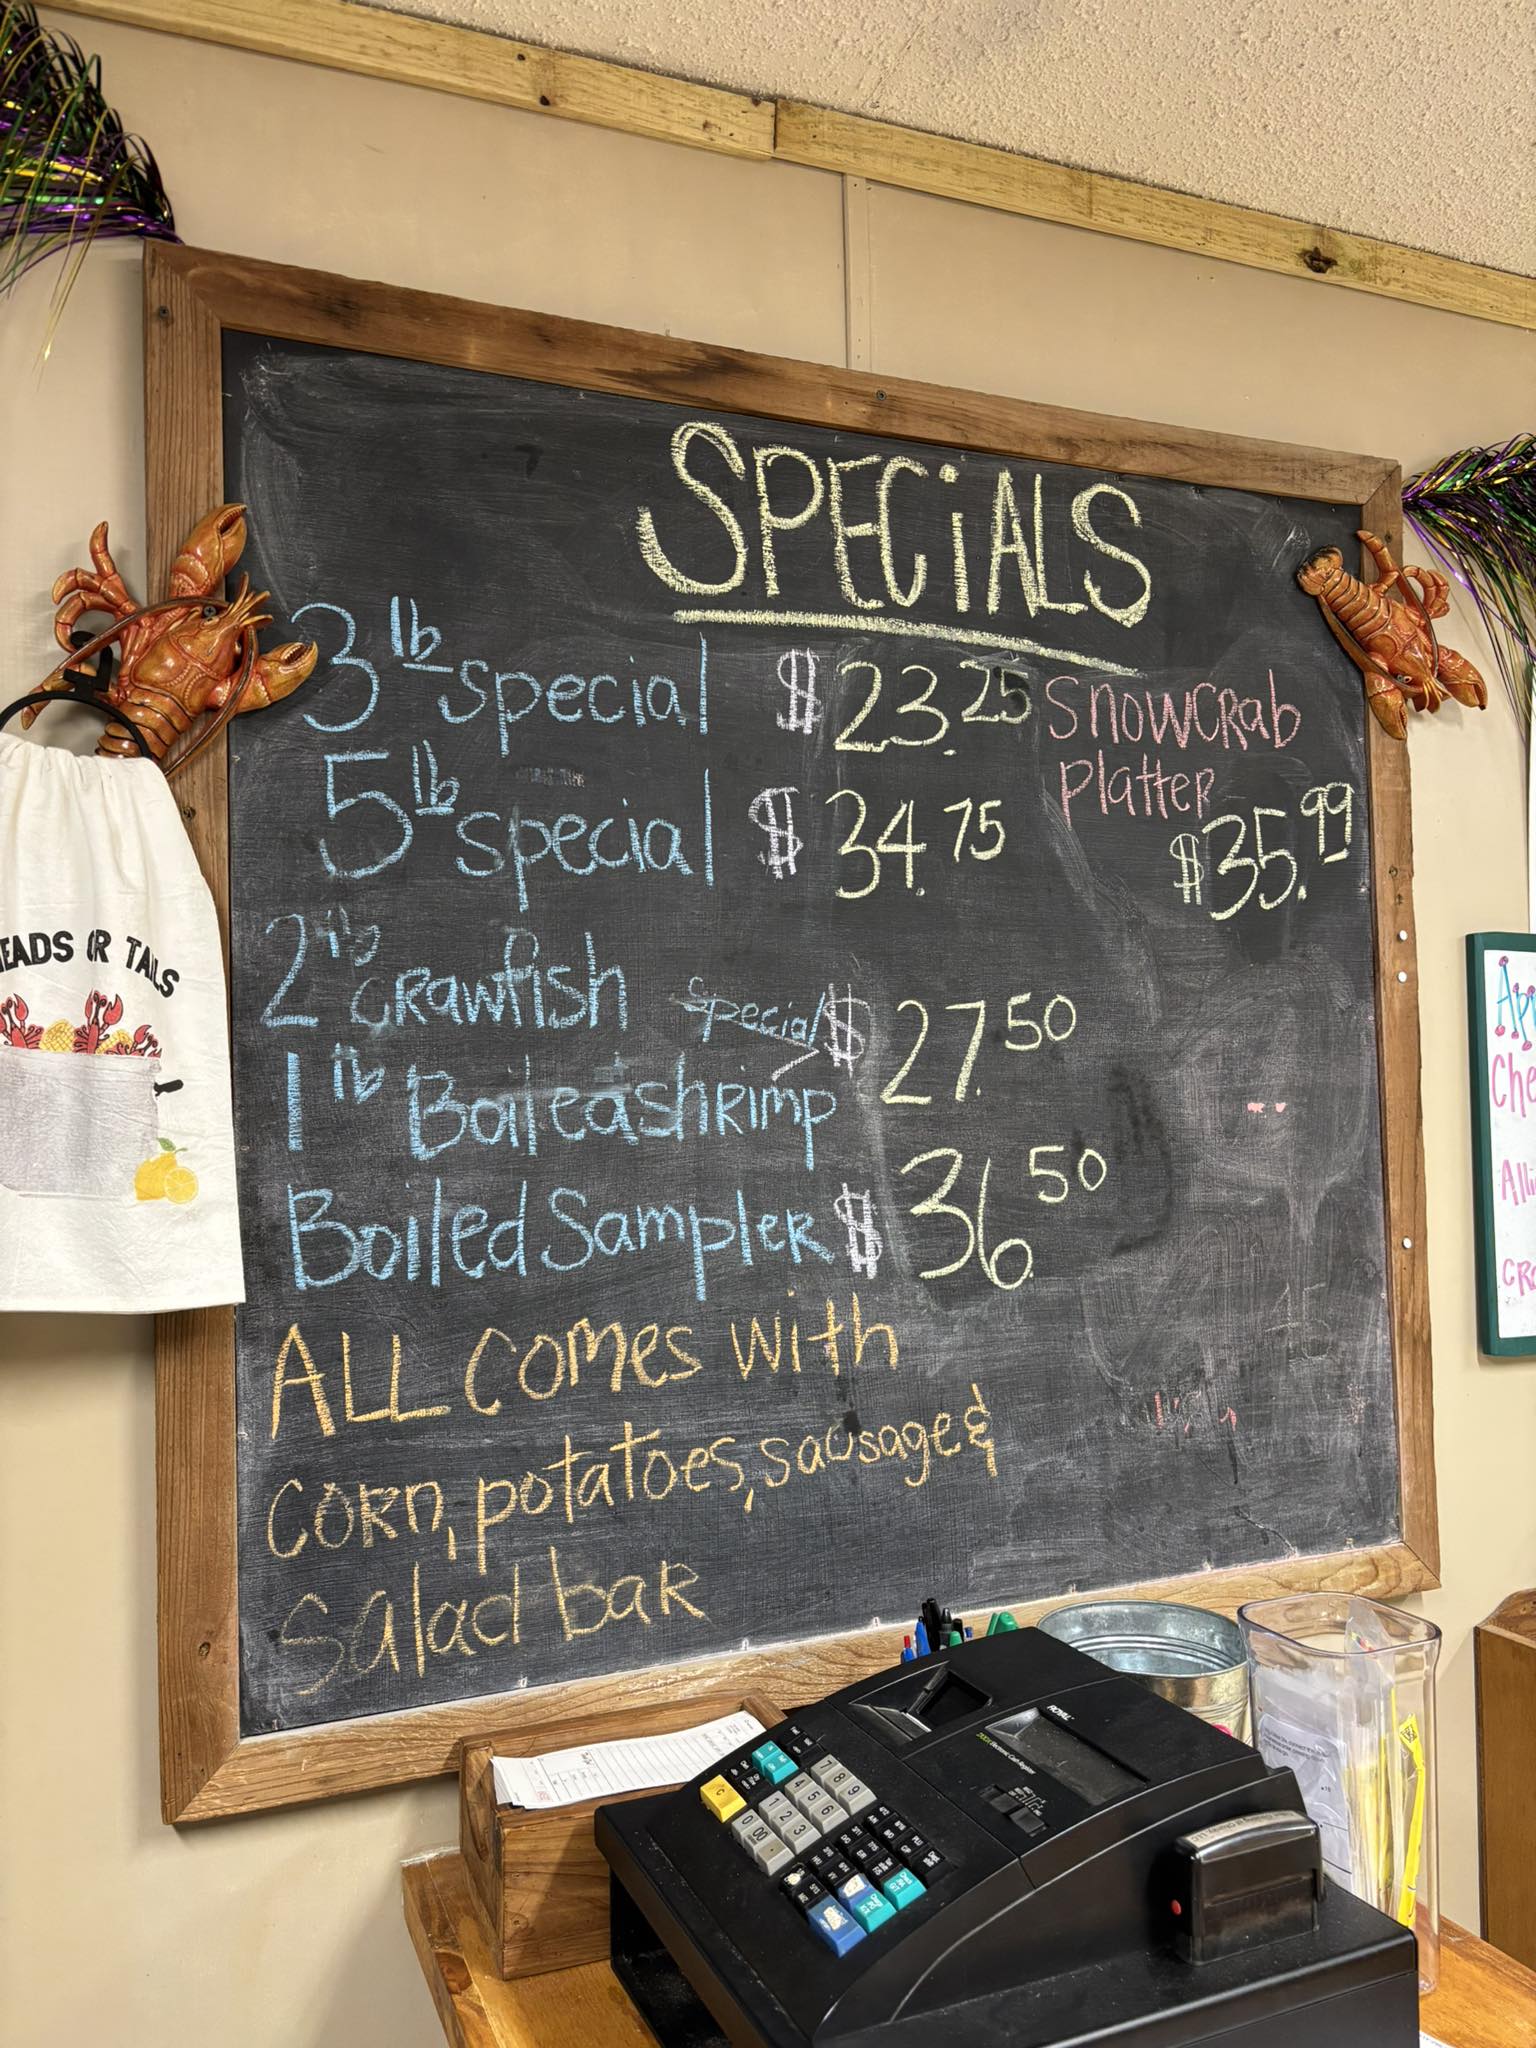 SPECiALS
3 lb special $ 23.25
5 lb special $ 34.75
2 lb CRawfish special $ 27.50
1 lb Boiled shRimp
Boiled SampleR $ 36.50
SnowCRab
PlatteR
$35.99
ALL Comes with
CORn, potatoes, sausage &
salad baR
EADS OR TAILS
Ap
Che
All
CR
ROYAL